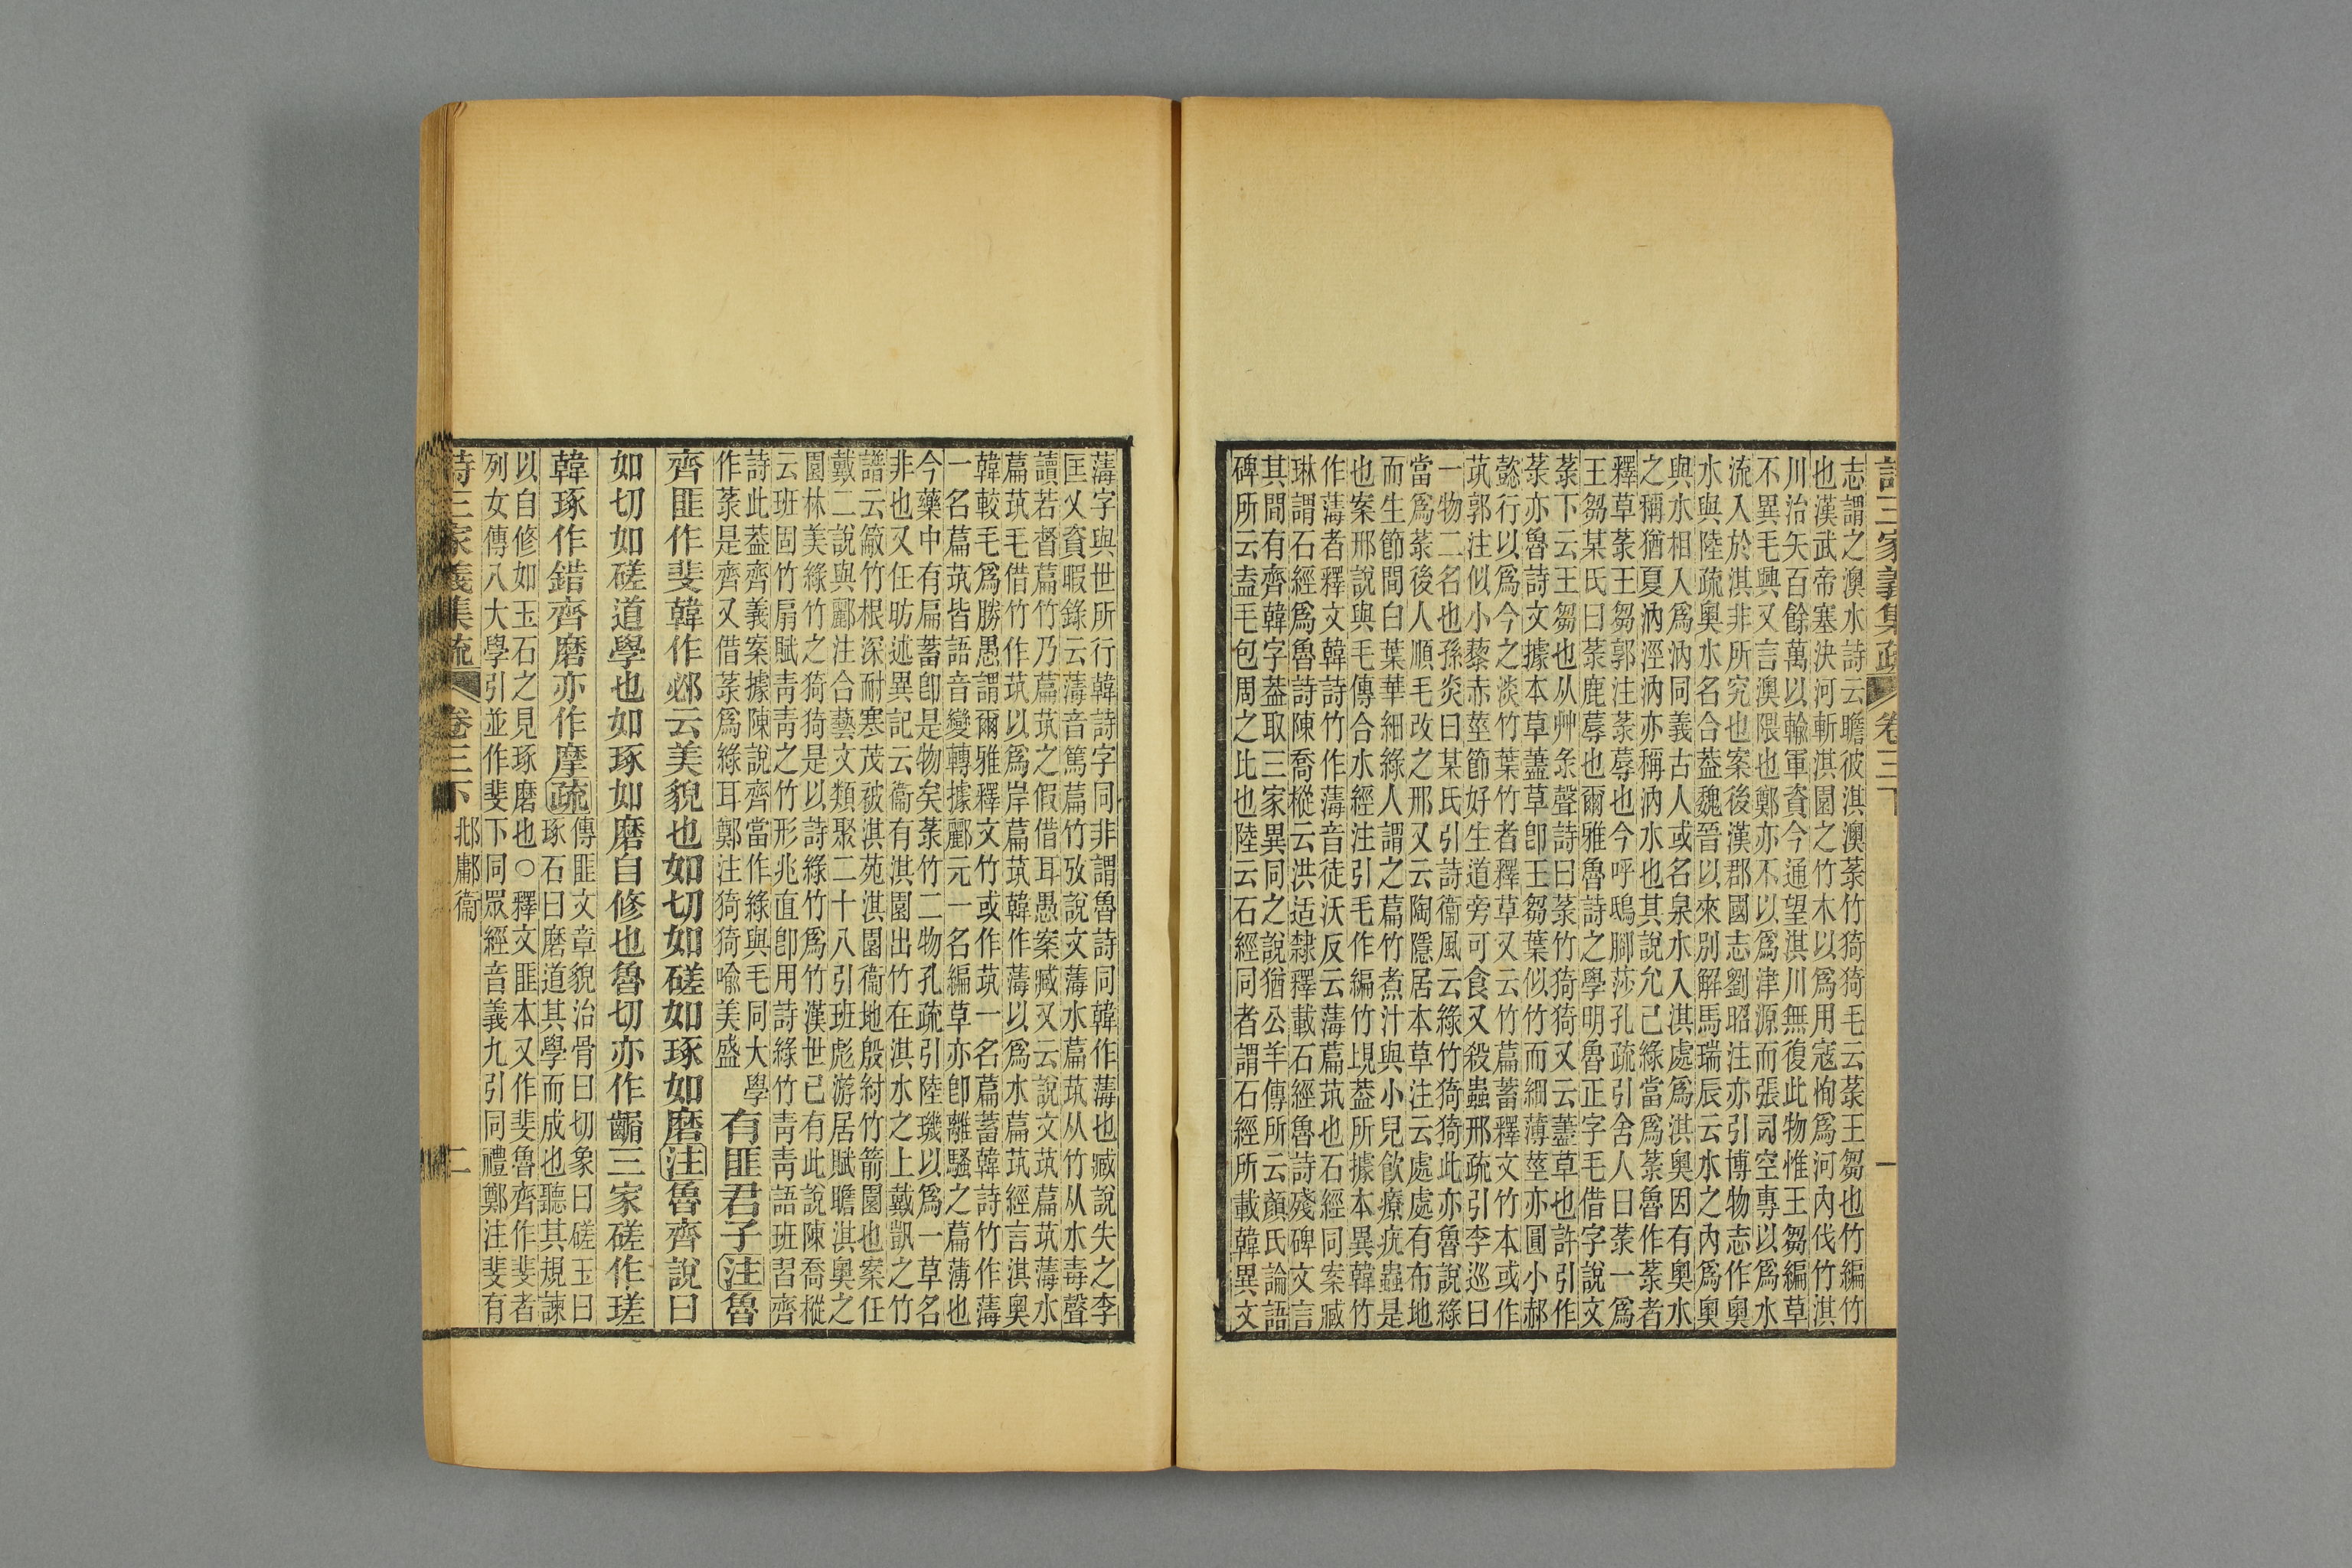 詩三家義集疏 卷三下 一
志謂之澳水詩云瞻彼淇澳菉竹猗猗毛云菉王芻也竹編竹
也漢武帝塞決河斬淇園之竹木以爲用寇恂爲河內伐竹淇
川治矢百餘萬以輸軍資今通望淇川無復此物惟王芻編草
不異毛興又言澳隈也鄭亦不以爲津源而張司空專以爲水
流入於淇非所究也案後漢郡國志劉昭注亦引博物志作奧
水與陸疏奧水名合蓋魏晉以來別解馬瑞辰云水之內爲奧
與水相入爲汭同義古人或名泉水入淇處爲淇奧因有奧水
之稱猶夏汭涇汭亦稱汭水也其說允已綠當爲菉魯作菉者
釋草菉王芻郭注菉蓐也今呼鴟腳莎孔疏引舍人曰菉一爲
王芻某氏曰菉鹿蓐也爾雅魯詩之學明魯正字毛借字說文
菉下云王芻也从艸彔聲詩曰菉竹猗猗又云藎草也許引作
菉亦魯詩文據本草藎草卽王芻葉似竹而細薄莖亦圓小郝
懿行以爲今之淡竹葉竹者釋草又云竹萹蓄釋文竹本或作
茿郭注似小藜赤莖節好生道旁可食又殺蟲邢疏引李巡曰
一物二名也孫炎曰某氏引詩衞風云綠竹猗猗此亦魯說綠
當爲菉後人順毛改之邢又云陶隱居本草注云處處有布地
而生節間白葉華細綠人謂之萹竹煮汁與小兒飮療疣蟲是
也案邢說與毛傳合水經注引毛作編竹垷蓋所據本異韓竹
作薄者釋文韓詩竹作薄音徒沃反云薄萹茿也石經同案臧
琳謂石經爲魯詩陳喬樅云洪适隸釋載石經魯詩殘碑文言
其間有齊韓字蓋取三家異同之說猶公羊傳所云顏氏論語
碑所云盍毛包周之比也陸云石經同者謂石經所載韓異文
薄字與世所行韓詩字同非謂魯詩同韓作薄也臧說失之李
匡乂資暇錄云薄音篤萹竹攷說文薄水萹茿从竹从水毒聲
讀若督萹竹乃萹茿之假借耳愚案臧又云說文茿萹茿薄水
萹茿毛借竹作茿以爲岸萹茿韓作薄以爲水萹茿經言淇奧
韓較毛爲勝愚謂爾雅釋文竹或作茿一名萹蓄韓詩竹作薄
一名萹茿皆語音變轉據酈元一名編草亦卽離騷之萹薄也
今藥中有扁蓄卽是物矣菉竹二物孔疏引陸璣以爲一草名
非也又任昉述異記云衞有淇園出竹在淇水之上戴凱之竹
譜云簵竹根深耐寒茂被淇苑淇園衞地殷紂竹箭園也案任
戴二說與酈注合藝文類聚二十八引班彪游居賦瞻淇奧之
園林美綠竹之猗猗是以詩綠竹爲竹漢世已有此說陳喬樅
云班固竹扇賦靑靑之竹形兆直卽用詩綠竹靑靑語班習齊
詩此蓋齊義案據陳說齊當作綠與毛同大學
作菉是齊又借菉爲綠耳鄭注猗猗喩美盛
有匪君子注魯
齊匪作斐韓作邲云美貌也如切如磋如琢如磨注魯齊說曰
如切如磋道學也如琢如磨自修也魯切亦作䶪三家磋作瑳
韓琢作錯齊磨亦作摩疏
傳匪文章貌治骨曰切象曰磋玉曰
琢石曰磨道其學而成也聽其規諫
以自修如玉石之見琢磨也○釋文匪本又作斐魯齊作斐者
列女傳八大學引並作斐下同眾經音義九引同禮鄭注斐有
詩三家義集疏 卷三下 邶鄘衞 二